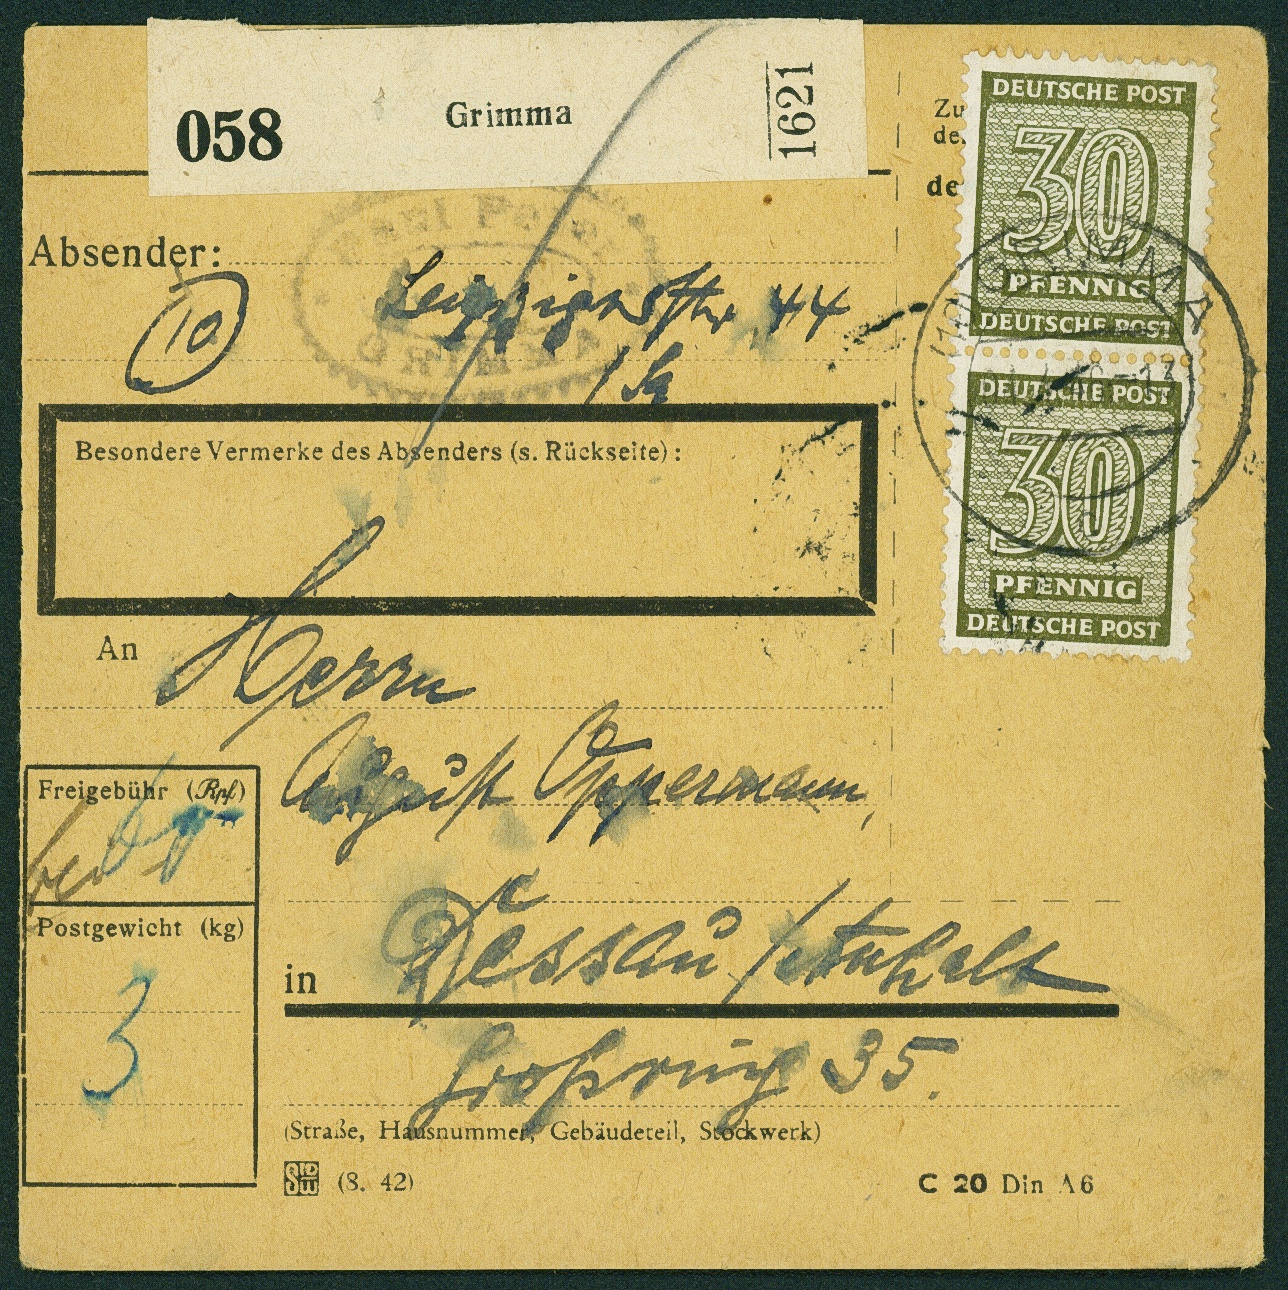 058
Grimma
1621
Zu
de
de
DEUTSCHE POST
30
PFENNIG
DEUTSCHE POST
DEUTSCHE POST
30
PFENNIG
DEUTSCHE POST
GRIMMA
Absender:
GRIMMA
10
Leipzigerstr. 44
/ Sa
Besondere Vermerke des Absenders (s. Rückseite):
An
Herrn
August Oppermann,
in Dessau / Anhalt
35.
(Straße, Hausnummer, Gebäudeteil, Stockwerk)
Freigebühr (Rpf)
Postgewicht (kg)
3
(8. 42)
C 20 Din A6